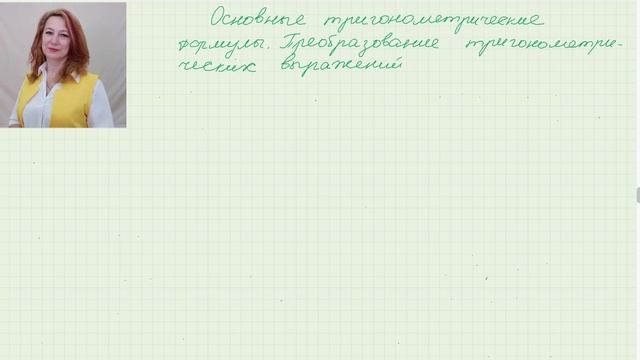 Основные тригонометрические
формулы. Преобразование тригонометри-
ческих выражений